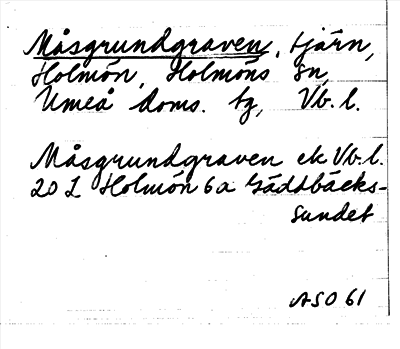 Måsgrundgraven, tjärn,
Holmön, Holmöns sn,
Umeå doms. tg, Vb. l.
Måsgrundgraven ek Vb. l.
20 L Holmön 6a Gäddbäcks-
sundet
ASO 61